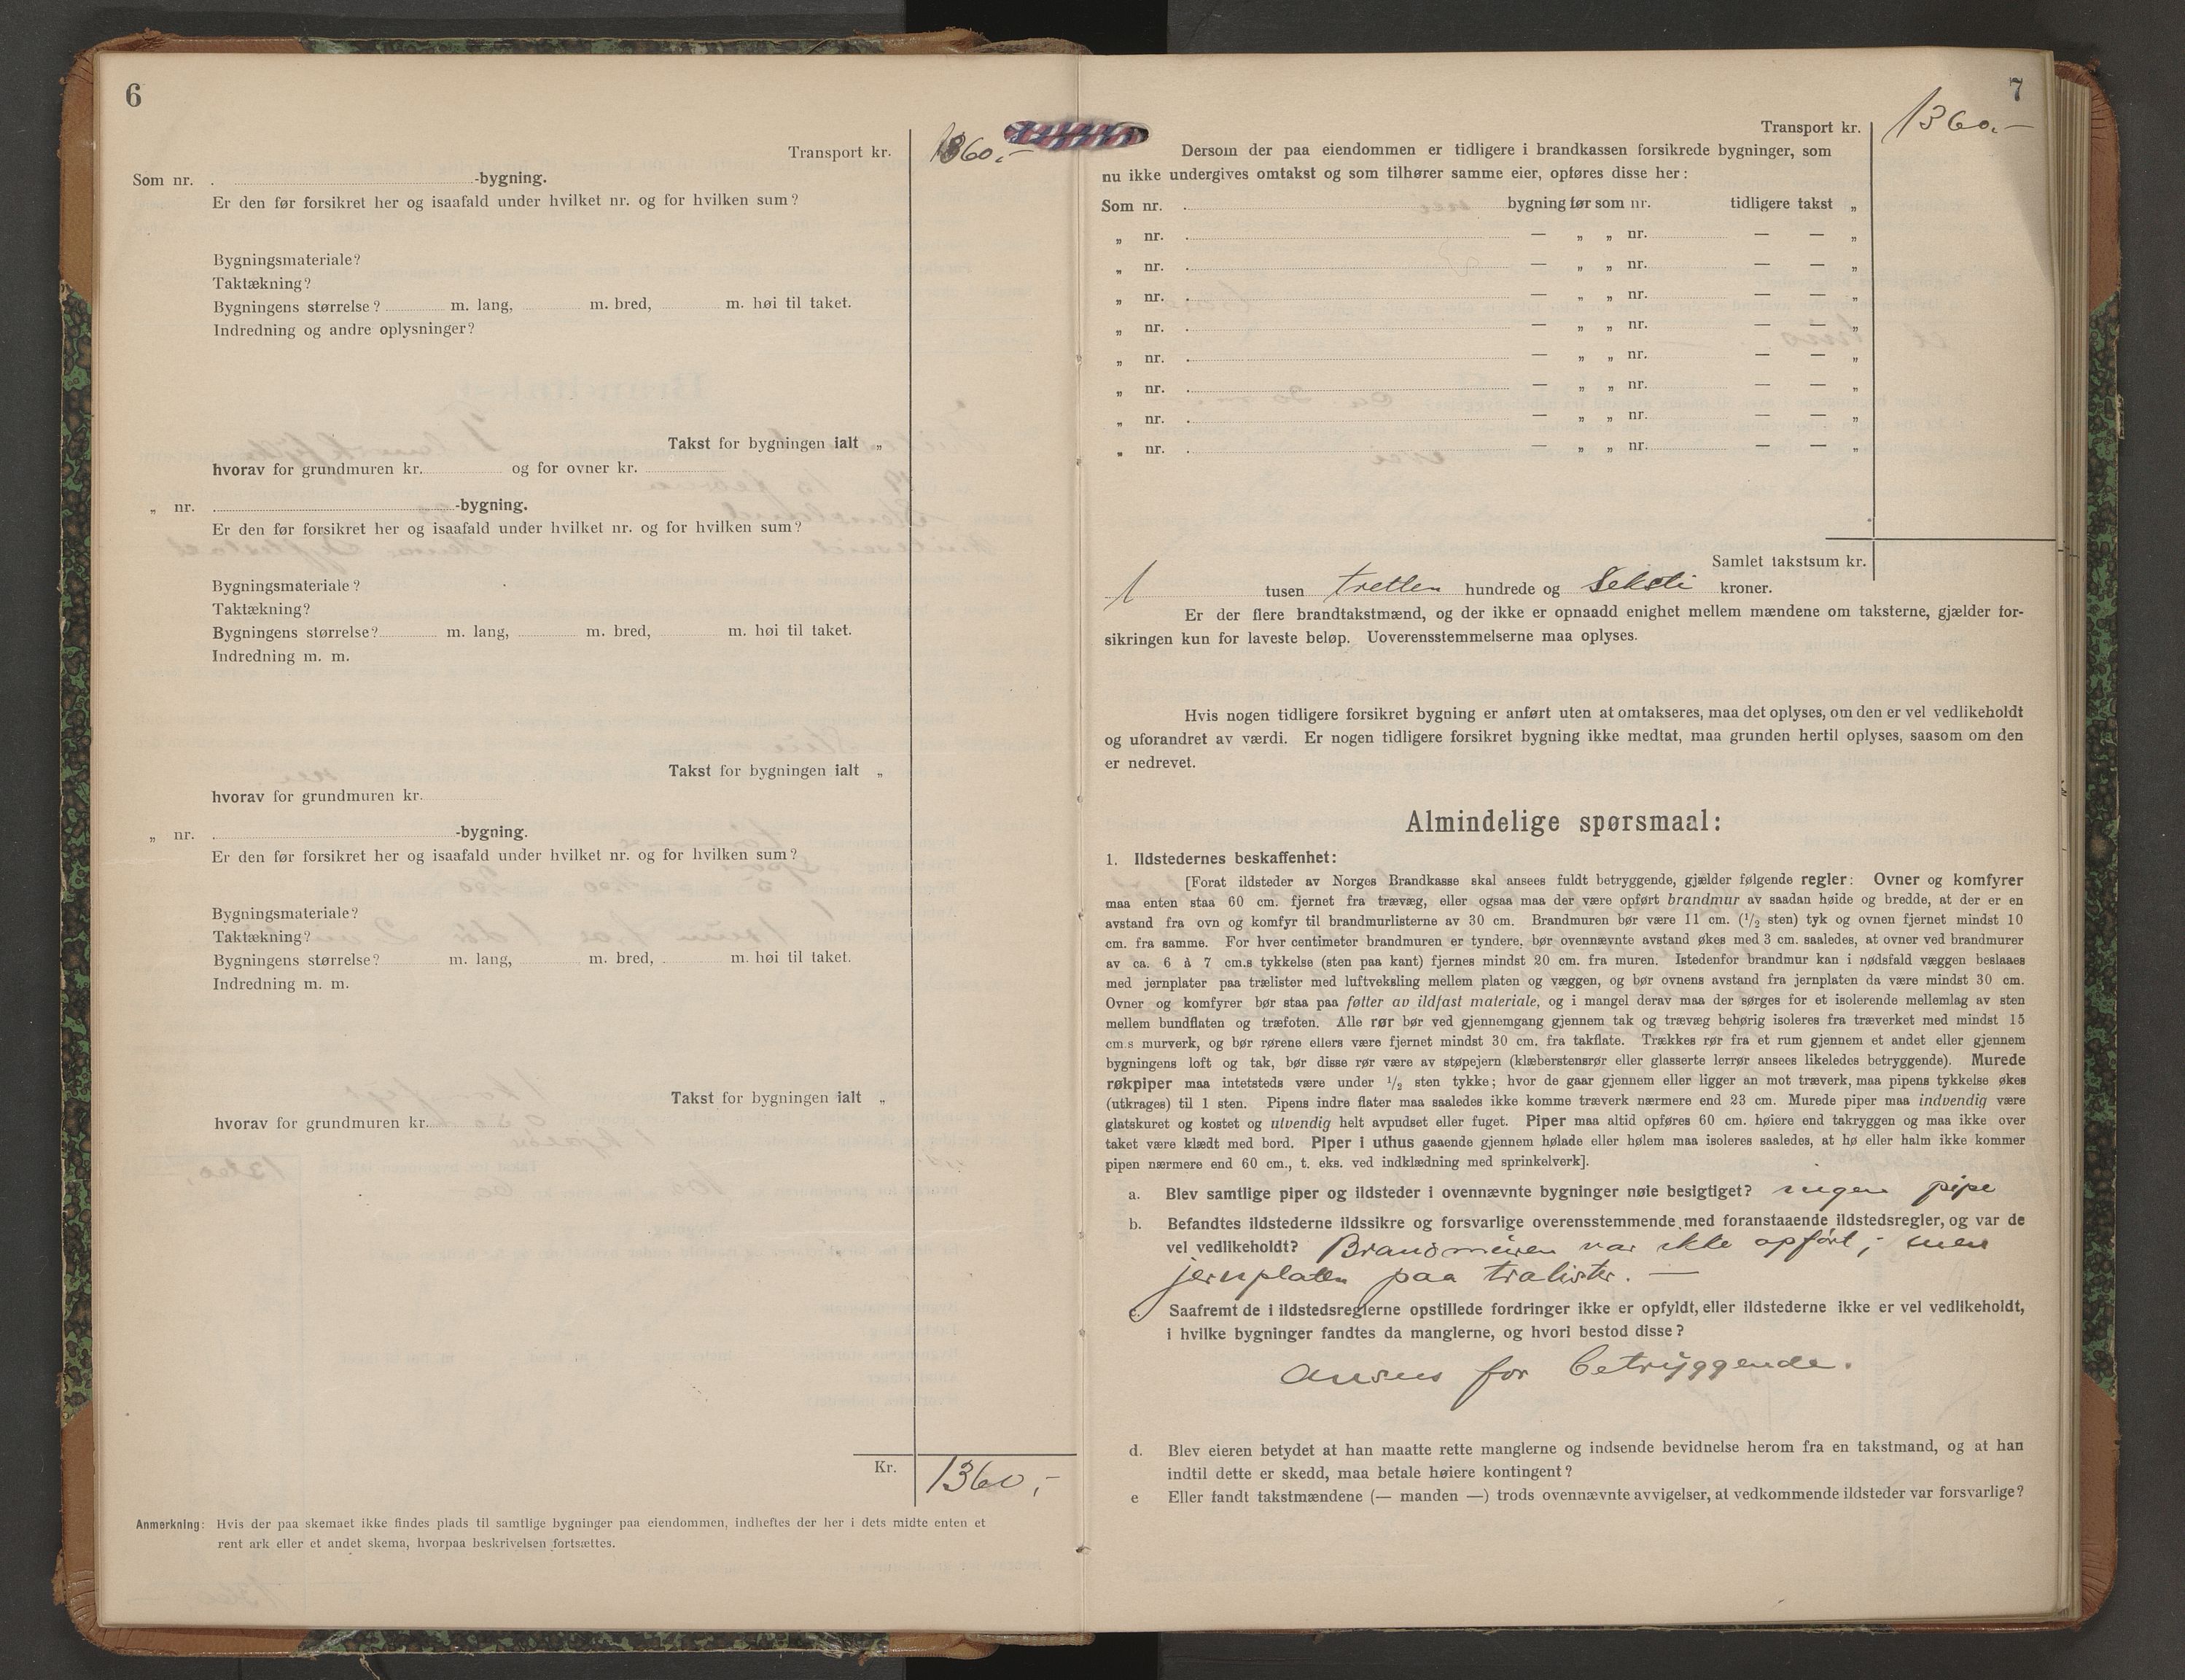 6
Transport kr. 1360,-
Som nr. . -bygning.
Er den før forsikret her og isaafald under hvilket nr. og for hvilken sum?
Bygningsmateriale?
Taktækning?
Bygningens størrelse? m. lang, m. bred, m. høi til taket.
Indredning og andre oplysninger?
Takst for bygningen ialt „
hvorav for grundmuren kr. og for ovner kr.
„ nr. -bygning.
Er den før forsikret her og isaafald under hvilket nr. og for hvilken sum?
Bygningsmateriale?
Taktækning?
Bygningens størrelse? m. lang, m. bred, m. høi til taket.
Indredning m. m.
Takst for bygningen ialt „
hvorav for grundmuren kr.
„ nr. -bygning.
Er den før forsikret her og isaafald under hvilket nr. og for hvilken sum?
Bygningsmateriale?
Taktækning?
Bygningens størrelse? m. lang, m. bred, m. høi til taket.
Indredning m. m.
Takst for bygningen ialt „
hvorav for grundmuren kr.
Kr. 1360,-
Anmerkning: Hvis der paa skemaet ikke findes plads til samtlige bygninger paa eiendommen, indheftes der her i dets midte enten et
rent ark eller et andet skema, hvorpaa beskrivelsen fortsættes.
7
Transport kr. 1360.-
Dersom der paa eiendommen er tidligere i brandkassen forsikrede bygninger, som
nu ikke undergives omtakst og som tilhører samme eier, opføres disse her:
Som nr. . bygning før som nr. tidligere takst „
„ nr. . — „ „ nr. — — „
„ nr. . — „ „ nr. — — „
„ nr. . — „ „ nr. — — „
„ nr. . — „ „ nr. — — „
„ nr. . — „ „ nr. — — „
„ nr. . — „ „ nr. — — „
„ nr. . — „ „ nr. — — „
„ nr. . — „ „ nr. — — „
Samlet takstsum kr.
1 tusen tretten hundrede og Seksti kroner.
Er der flere brandtakstmænd, og der ikke er opnaadd enighet mellem mændene om taksterne, gjælder for-
sikringen kun for laveste beløp. Uoverensstemmelserne maa oplyses.
Hvis nogen tidligere forsikret bygning er anført uten at omtakseres, maa det oplyses, om den er vel vedlikeholdt
og uforandret av værdi. Er nogen tidligere forsikret bygning ikke medtat, maa grunden hertil oplyses, saasom om den
er nedrevet.
Almindelige spørsmaal:
1. Ildstedernes beskaffenhet:
[Forat ildsteder av Norges Brandkasse skal ansees fuldt betryggende, gjælder følgende regler: Ovner og komfyrer
maa enten staa 60 cm. fjernet fra trævæg, eller ogsaa maa der være opført brandmur av saadan høide og bredde, at der er en
avstand fra ovn og komfyr til brandmurlisterne av 30 cm. Brandmuren bør være 11 cm. (1/2 sten) tyk og ovnen fjernet mindst 10
cm. fra samme. For hver centimeter brandmuren er tyndere, bør ovennævnte avstand økes med 3 cm. saaledes, at ovner ved brandmurer
av ca. 6 à 7 cm.s tykkelse (sten paa kant) fjernes mindst 20 cm. fra muren. Istedenfor brandmur kan i nødsfald væggen beslaaes
med jernplater paa trælister med luftveksling mellem platen og væggen, og bør ovnens avstand fra jernplaten da være mindst 30 cm.
Ovner og komfyrer bør staa paa føtter av ildfast materiale, og i mangel derav maa der sørges for et isolerende mellemlag av sten
mellem bundflaten og træfoten. Alle rør bør ved gjennemgang gjennem tak og trævæg behørig isoleres fra træverket med mindst 15
cm.s murverk, og bør rørene ellers være fjernet mindst 30 cm. fra takflate. Trækkes rør fra et rum gjennem et andet eller gjennem
bygningens loft og tak, bør disse rør være av støpejern (klæberstensrør eller glasserte lerrør ansees likeledes betryggende). Murede
røkpiper maa intetsteds være under 1/2 sten tykke; hvor de gaar gjennem eller ligger an mot træverk, maa pipens tykkelse økes
(utkrages) til 1 sten. Pipens indre flater maa saaledes ikke komme træverk nærmere end 23 cm. Murede piper maa indvendig være
glatskuret og kostet og utvendig helt avpudset eller fuget. Piper maa altid opføres 60 cm. høiere end takryggen og maa ikke over
taket være klædt med bord. Piper i uthus gaaende gjennem hølade eller hølem maa isoleres saaledes, at hø eller halm ikke kommer
pipen nærmere end 60 cm., t. eks. ved indklædning med sprinkelverk].
a. Blev samtlige piper og ildsteder i ovennævnte bygninger nøie besigtiget? ingen pipe
b. Befandtes ildstederne ildssikre og forsvarlige overensstemmende med foranstaaende ildstedsregler, og var de
vel vedlikeholdt? Brandmuren var ikke opført; men
jernplaten paa tralister. —
c. Saafremt de i ildstedsreglerne opstillede fordringer ikke er opfyldt, eller ildstederne ikke er vel vedlikeholdt,
i hvilke bygninger fandtes da manglerne, og hvori bestod disse?
ansees for betryggende.
d. Blev eieren betydet at han maatte rette manglerne og indsende bevidnelse herom fra en takstmand, og at han
indtil dette er skedd, maa betale høiere kontingent?
e Eller fandt takstmændene (— manden —) trods ovennævnte avvigelser, at vedkommende ildsteder var forsvarlige?